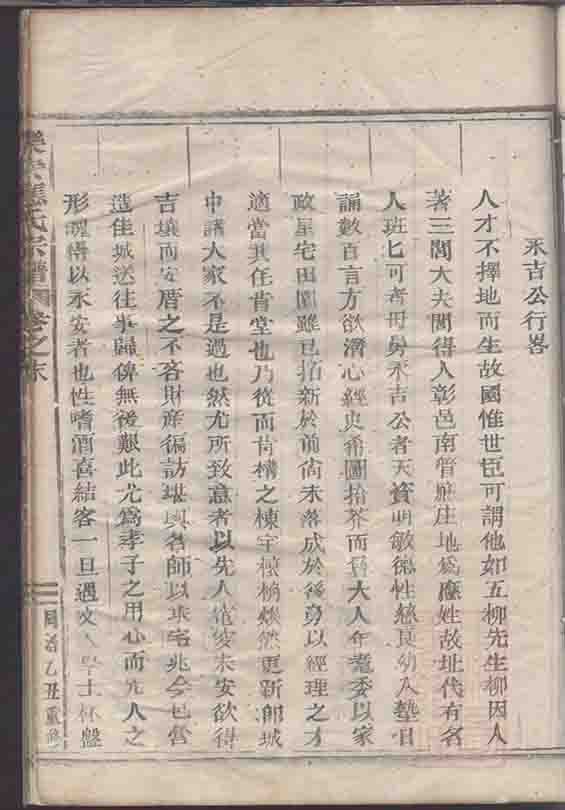 永吉公行畧
人才不擇地而生故國惟世臣可謂他如五柳先生柳因人
著三閭大夫閭得人彰邑南管麻庄地為應姓故址代有名
人班匕可考毋舅永吉公者天資明敏德性慈良幼入塾唱
誦數百言方欲潛心經史希圖拾芥而 大人年耄委以家
政星宅田園雖已拓新於前尚未落成於後舅以經理之才
適當其任肯堂也乃從而肯構之棟宇榱桷煥然更新即城
中諸大家不是過也然尤所致意者以先人窀穸未安欲得
吉壤而安厝之不吝財產徧訪堪輿名師以求宅兆今已營
造佳城送往事歸俾無後艱此尤為孝子之用心而先人之
形魂得以永安者也性嗜酒喜結客一旦遇文人學士杯盤
應氏宗譜 卷之末
乙丑重修